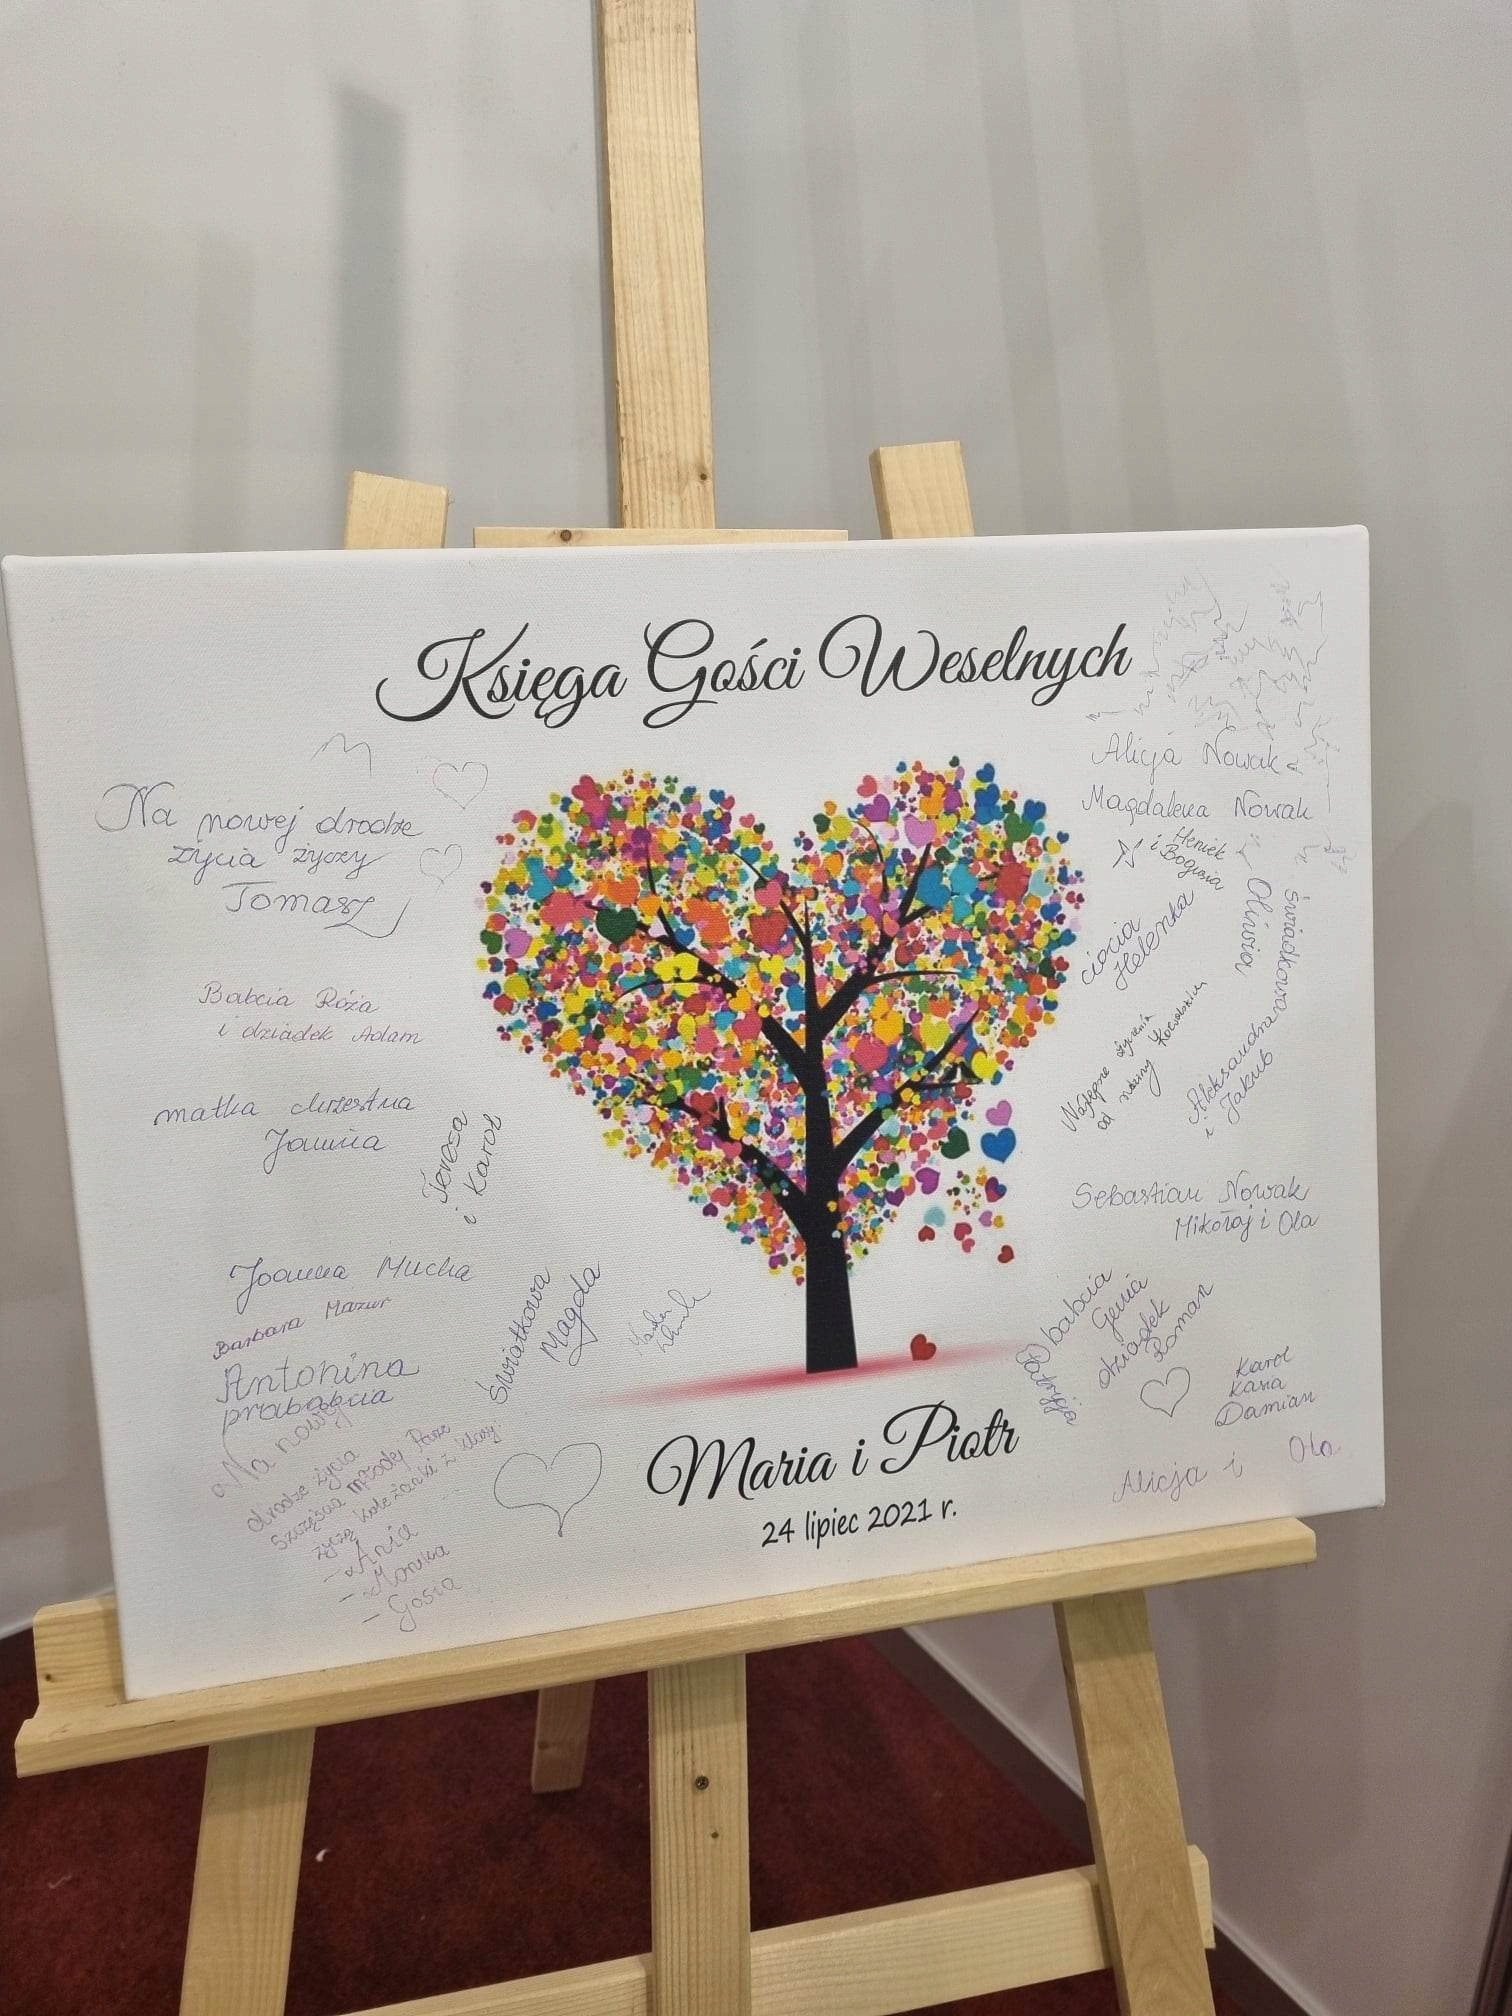 Księga Gości Weselnych
Na nowej drodze
życia życzy
Tomasz
Babcia Róża
i dziadek Adam
matka chrzestna
Joanna
Teresa
i Karol
Joanna Mucha
Barbara Mazur
Antonina
prababcia
Na nowej
drodze życia
szczęścia młodej Parze
życzą koleżanki z klasy:
- Ania
- Monika
- Gosia
Świadkowa
Magda
Alicja Nowak
Magdalena Nowak
i Heniek
Bogusia
ciocia
Helenka
Oliwia
Świadkowa
Aleksandra
i Jakub
życzenia
od rodziny
Sebastian Nowak
Mikołaj i Ola
babcia
Genia
dziadek
Roman
Patrycja
Karol
Kasia
Damian
Alicja i Ola
Maria i Piotr
24 lipiec 2021 r.